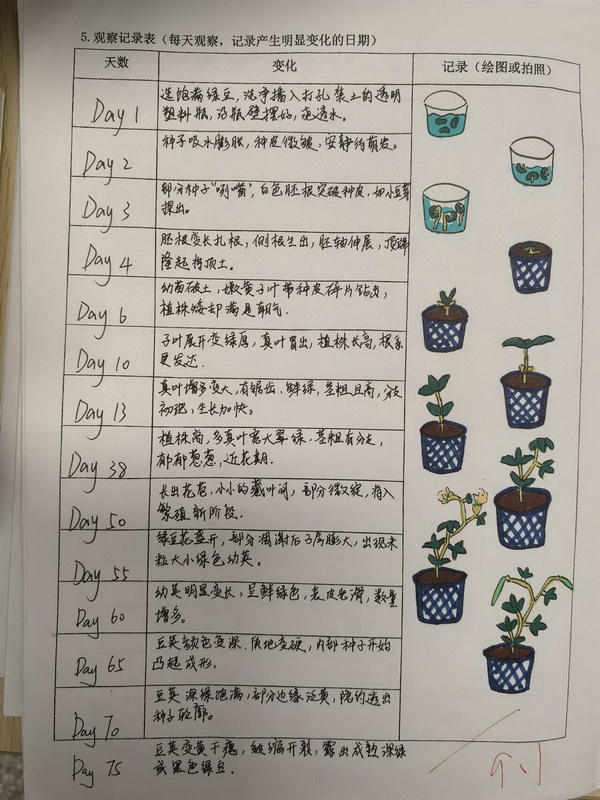 5. 观察记录表（每天观察，记录产生明显变化的日期）
天数 变化 记录（绘图或拍照）
Day 1
选饱满绿豆，洗净播入打孔装土的透明
塑料瓶，沿瓶壁摆好，浇透水。
Day 2
种子吸水膨胀，种皮微皱，安静待萌发。
Day 3
部分种子“咧嘴”，白色胚根突破种皮，如小豆芽
探出。
Day 4
胚根变长扎根，侧根生出，胚轴伸展，顶端
隆起将顶土。
Day 6
幼苗破土，嫩黄子叶带种皮碎片钻出，
植株矮却满是朝气。
Day 10
子叶展开变绿厚，真叶冒出，植株长高，根系
更发达.
Day 13
真叶增多变大，有锯齿、鲜绿，茎粗且高，分枝
初现，生长加快。
Day 38
植株高，多真叶宽大翠绿，茎粗有分支，
郁郁葱葱，近花期.
Day 50
长出花苞，小小的藏叶间，部分微绽，将入
繁殖新阶段。
Day 55
绿豆花盛开，部分凋谢后子房膨大，出现米
粒大小绿色幼荚。
Day 60
幼荚明显变长，呈鲜绿色，表皮光滑，数量
增多。
Day 65
豆荚颜色变深、质地变硬，内部种子开始
凸起成形.
Day 70
豆荚深绿饱满，部分边缘泛黄，隐约透出
种子轮廓。
Day 75
豆荚变黄干瘪，皱缩开裂，露出成熟深绿
或黑色绿豆.